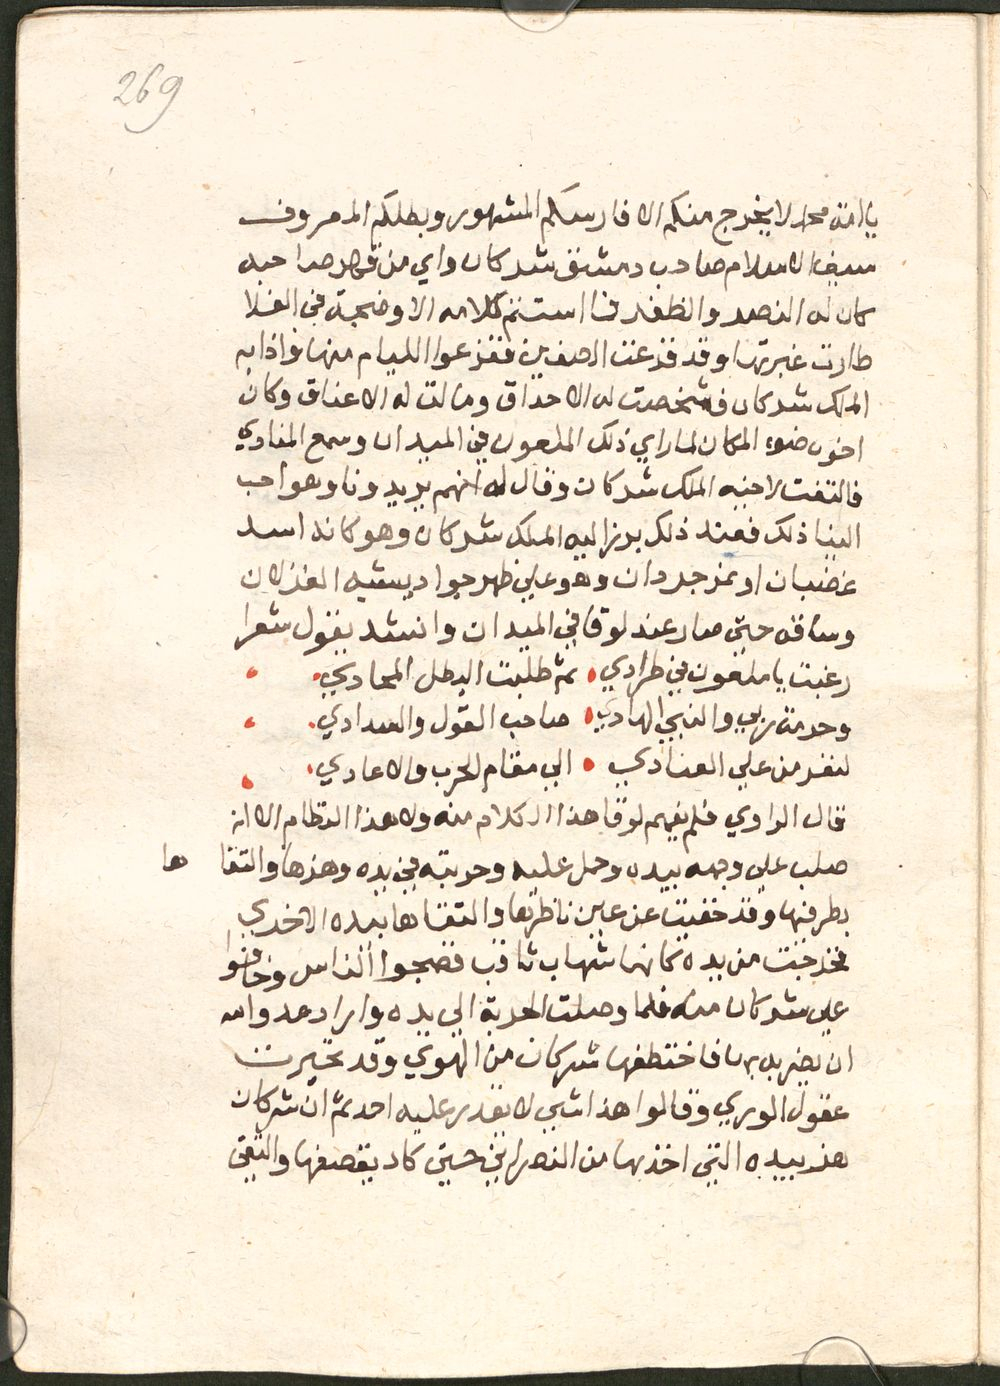 269
يا امة محمد لا يخرج منكم الا فارسكم المشهور وبطلكم المعروف
سيف الاسلام صاحب دمشق شركان واي من قهر صاحبه
كان له النصر والظفر فما استتم كلامه الا وضجة في الفلا
طارت غبرتها وقد فزعت الصفين ففزعوا الليام منها واذا به
الملك شركان فشخصت له الاحداق ومالت له الاعناق وكان
اخوه ضوء المكان لما راي ذلك الملعون في الميدان وسمع المنادي
فالتفت لاخيه الملك شركان وقال له انهم يريدونا وهو احب
الينا ذلك فعند ذلك برز اليه الملك شركان وهو كانه اسد
غضبان او نمر جردان وهو علي ظهر جواد يشبه الغزلان
وساقه حتي صار عند لوقا في الميدان وانشد يقول شعرا
رغبت يا ملعون في طرادي • ثم طلبت البطل المحادي •
وحرمة ربي والنبي الهادي • صاحب القول والسدادي •
لنفر من علي العنادي • الي مقام الحرب والاعادي •
قال الراوي فلم يفهم لوقا هذا الكلام منه ولا هذا النظام الا انه
صلب علي وجهه بيده وحمل عليه وحربته في يده وهزها والتقا ها
بطرفها وقد خفيت عن عاين ناظرها والتقاها بيده الاخري
فخرجت من يده كانها شهاب ثاقب فضجوا الناس وخافوا
علي شركان منه فلما وصلت الحربة الي يده واراد عدو الله
ان يضربه بها فاختطفها شركان من الهوي وقد تحيرت
عقول الوري وقالوا هذا شي لا يقدر عليه احد ثم ان شركان
هز بيده التي اخذها من النصراني حتي كاد يقصفها والتقي